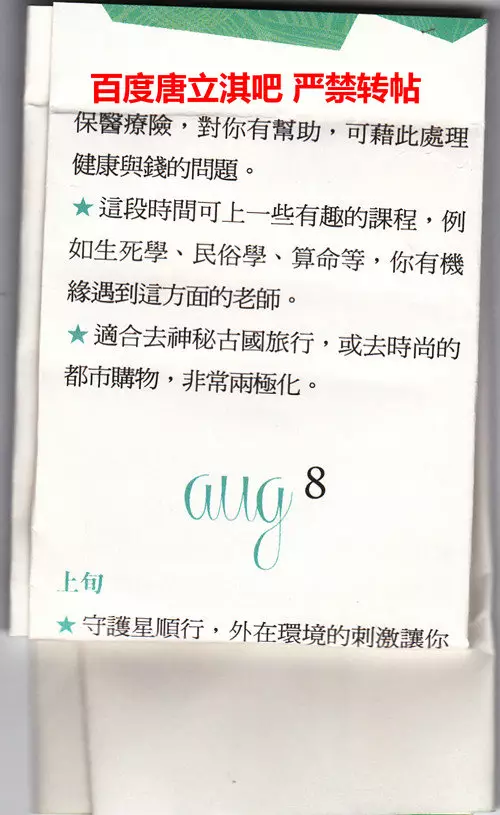 百度唐立淇吧 严禁转帖
保醫療險，對你有幫助，可藉此處理
健康與錢的問題。
★這段時間可上一些有趣的課程，例
如生死學、民俗學、算命等，你有機
緣遇到這方面的老師。
★適合去神秘古國旅行，或去時尚的
都市購物，非常兩極化。
aug 8
上旬
★守護星順行，外在環境的刺激讓你